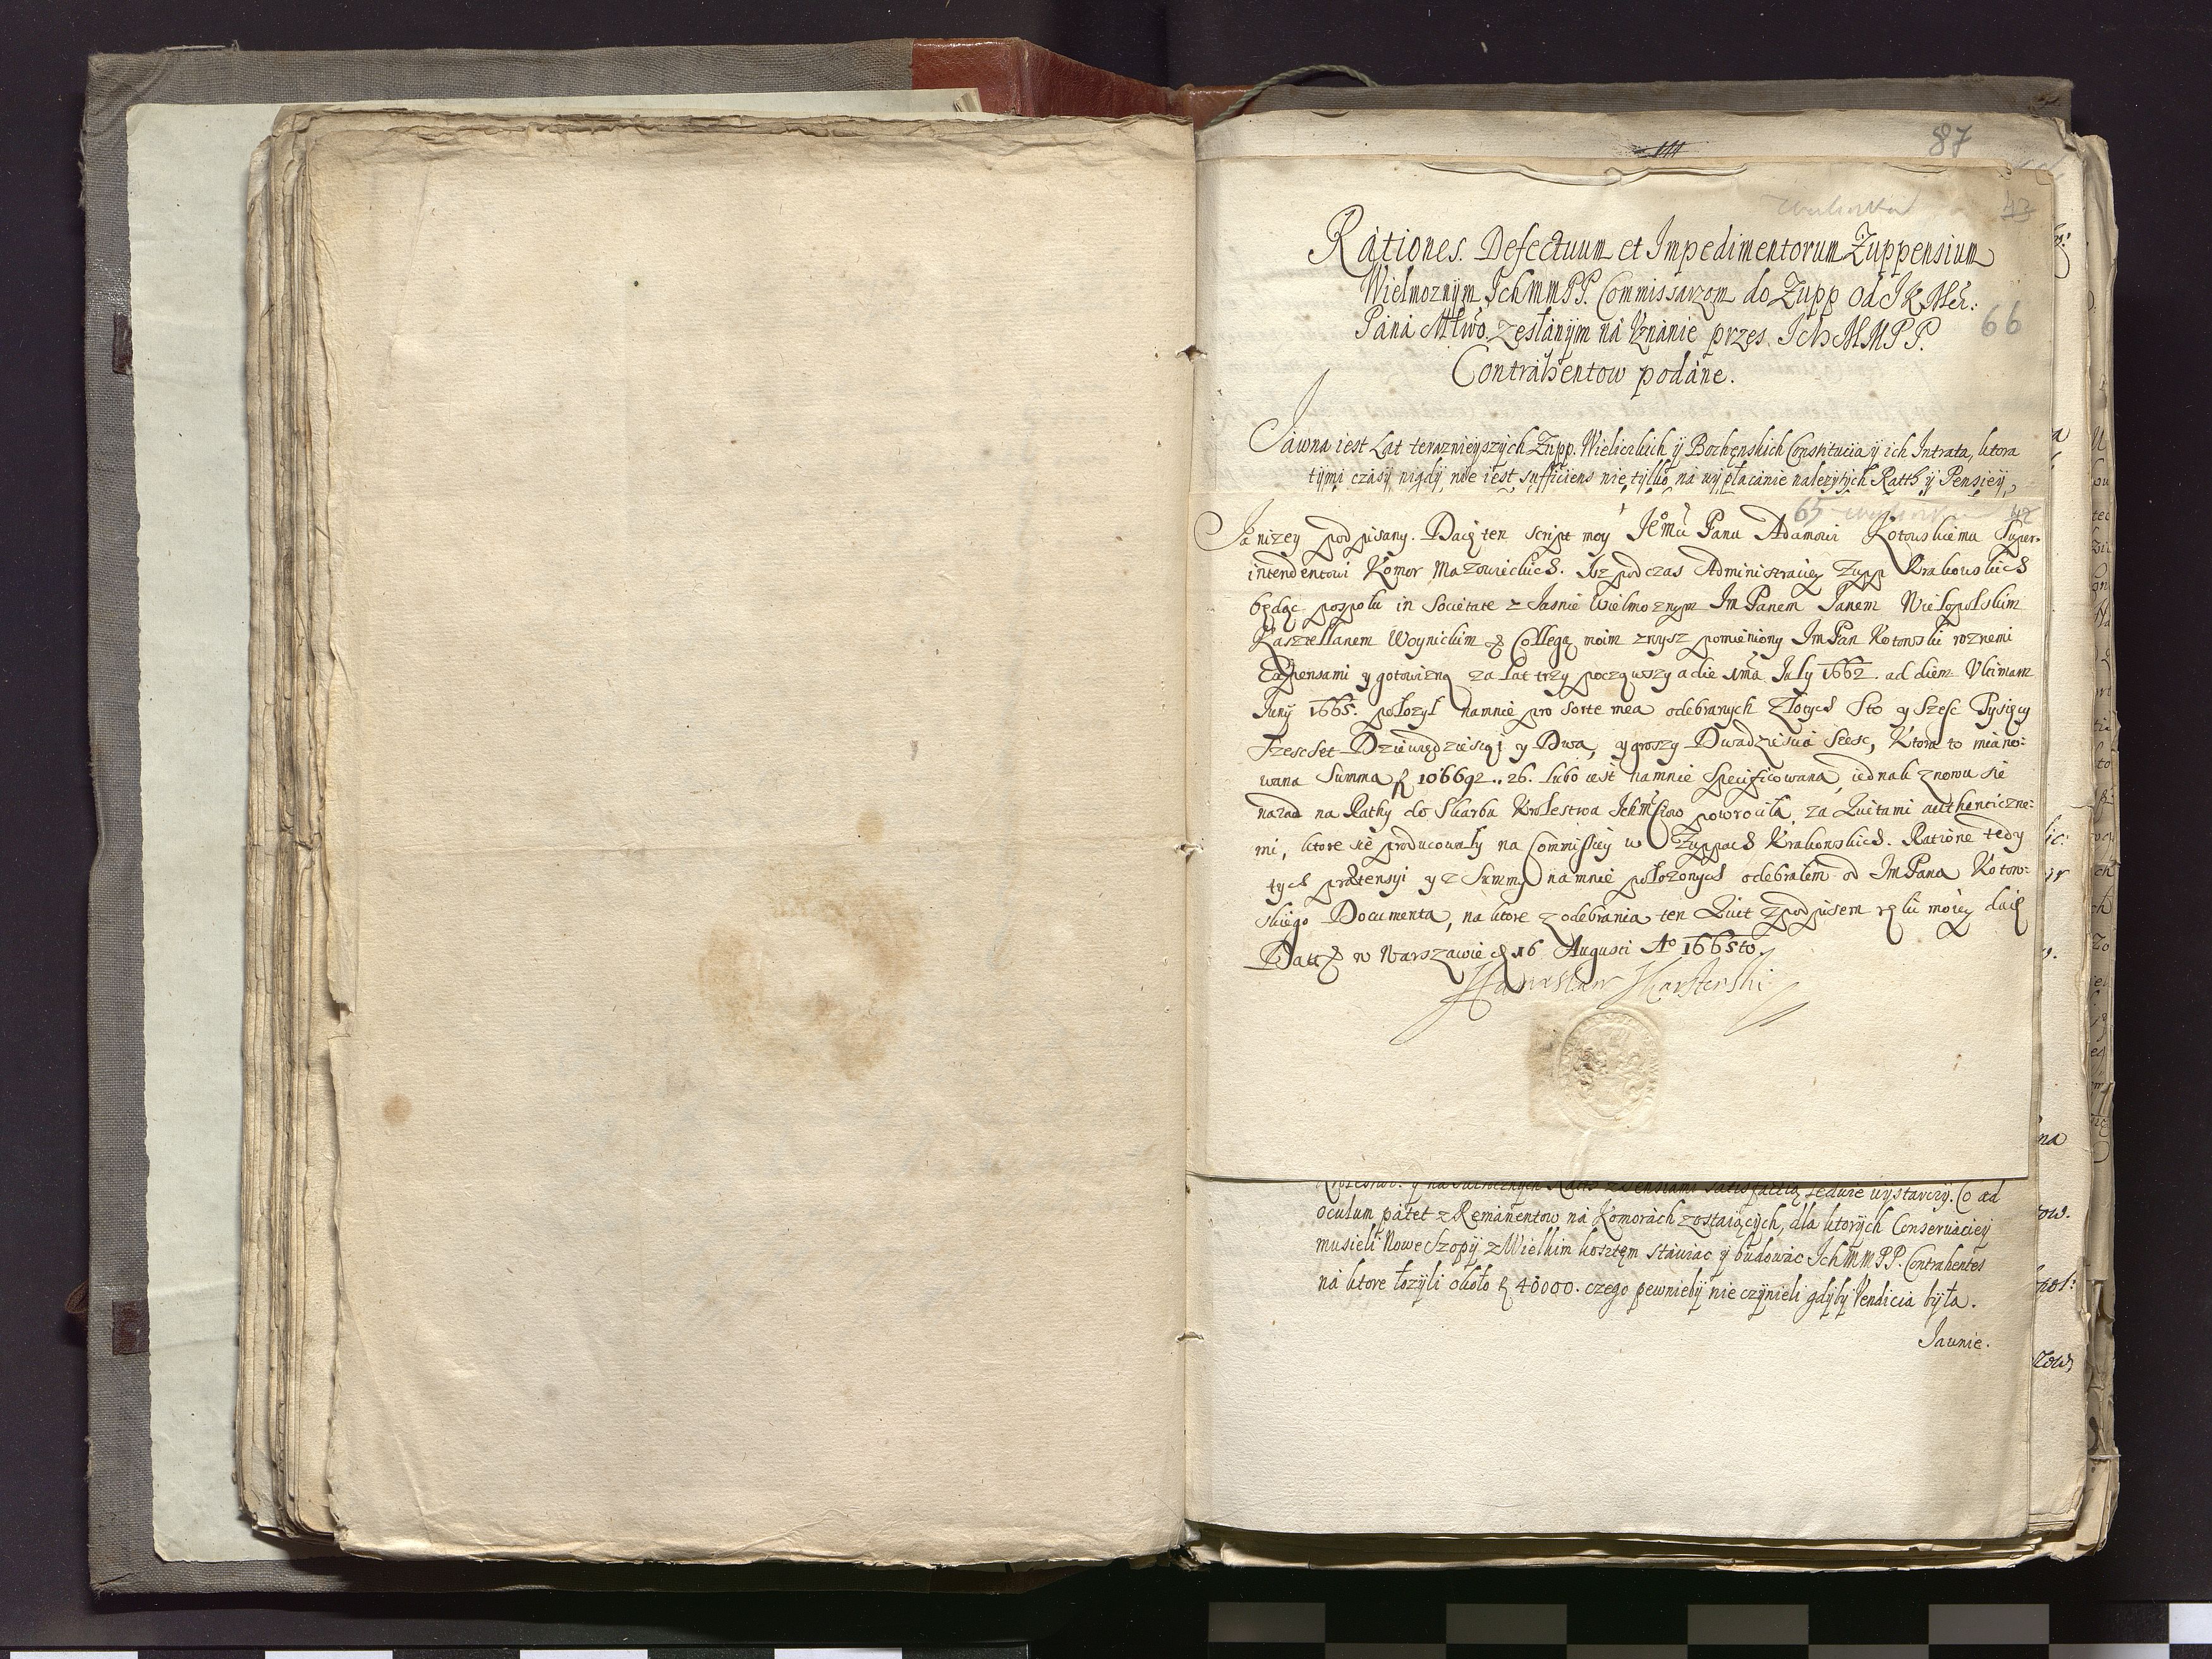 87
43
Rátiones. Defectuum et Impedimentorum Zuppensium
Wielmoznÿm JchMMPP. Commissarzom do Zupp od JK
Páná Młwo. zesłánÿm ná Vznánie przes. JchMMPP.
66
Contráhentow podáne.
Jáwna iest Lat teráznieyszÿch Zupp. Wielickich ÿ Bochenskich Constitucia ÿ ich Intrata, ktora
tÿmi czásÿ nigdÿ nie iest sufficiens nie tÿlko ná wÿpłacánie nalezÿtÿch Ratth ÿ Pensieÿ,
65
42
Ja nizey podpisany. Daię ten script moy Jemu Panu Adamowi Kotowskiemu Super-
intendentowi Komor Mazowieckich. Isz podczas Administraciey Zupp Krakowskich
będąc pospołu in Societate z Jasnie Wielmoznym Jm Panem Janem Wielopolskim
Kasztellanem Woynickim & Collegą moim zwysz pomięniony JmPan Kotowski roznemi
Expensami y gotowizną za lat trzy począwszy a die 1ma July 1662. ad diem Vltimam
Juny 1665. połozył namnie pro sorte mea odebranych Złotych Sto y Szesc Tysięcy
Szescset Dziewędziesiąt y Dwa, y groszy Dwadziescia Seesc, Ktora to miano-
wana Summa 106692..26. lubo iest namnie specificowana, iednak znowu sie
nazad na Rathy do Skarbu Krolestwa powrociła, za Quitami authenticzne-
mi, ktore sie producowały na Commissiey w Zuppach Krakowskich. Ratione tedy
tych prætensyi y z Summy namnie połozonych odebrałem od JmPana Kotow-
skiego Documenta, na ktore z odebrania ten Quit z podpisem ręki moiey daię
Datt w Warszawie d 16 Augusti Ao 1665to.
Stanisław Skarszewski
satisfactią ledwie wystarczy. Co ad
oculum pátet z Remánentow ná Komorách zostáiących, dla ktorÿch Conserváciey
musieli Nowe Szopÿ z Wielkim kosztęm stáwiac ÿ budowác JchMMPP. Contrahentes
ná ktore łozÿli około 40000. czego pewniebÿ nie czÿnieli gdÿbÿ Vendicia bÿła.
Jawnie.